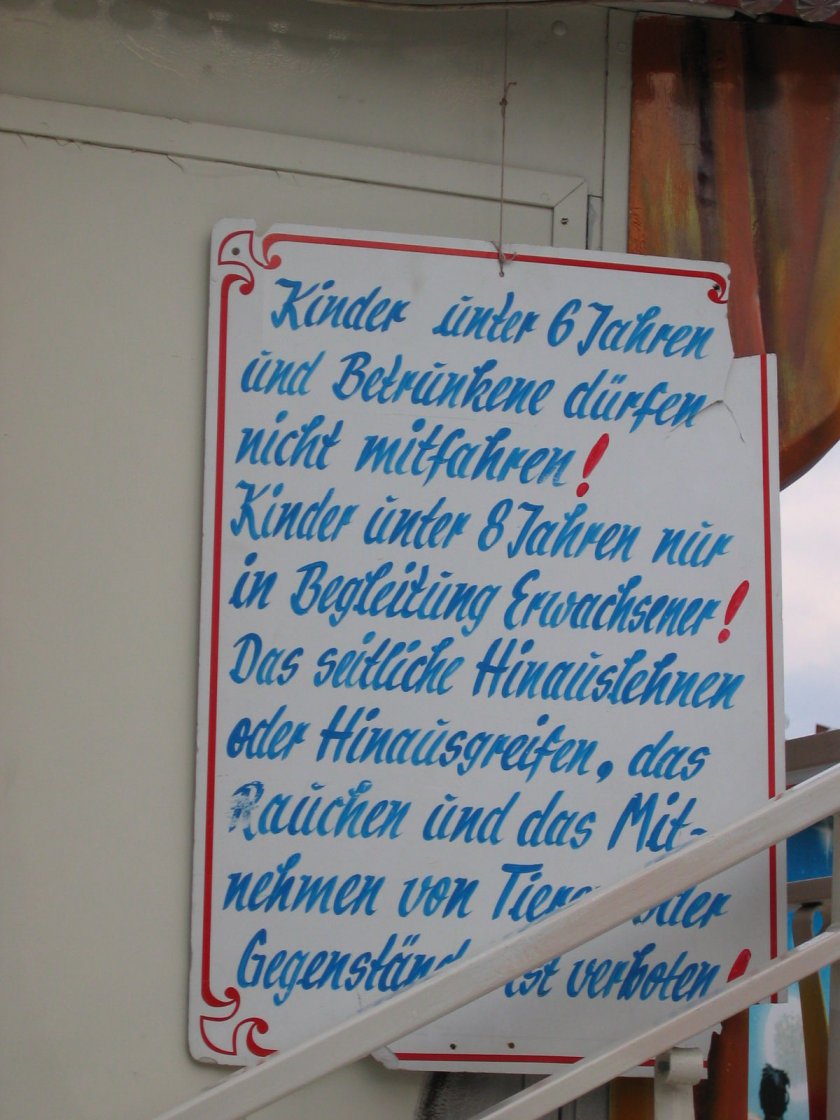 Kinder unter 6 Jahren
und Betrunkene dürfen
nicht mitfahren!
Kinder unter 8 Jahren nur
in Begleitung Erwachsener!
Das seitliche Hinauslehnen
oder Hinausgreifen, das
Rauchen und das Mit-
nehmen von oder
ist verboten!